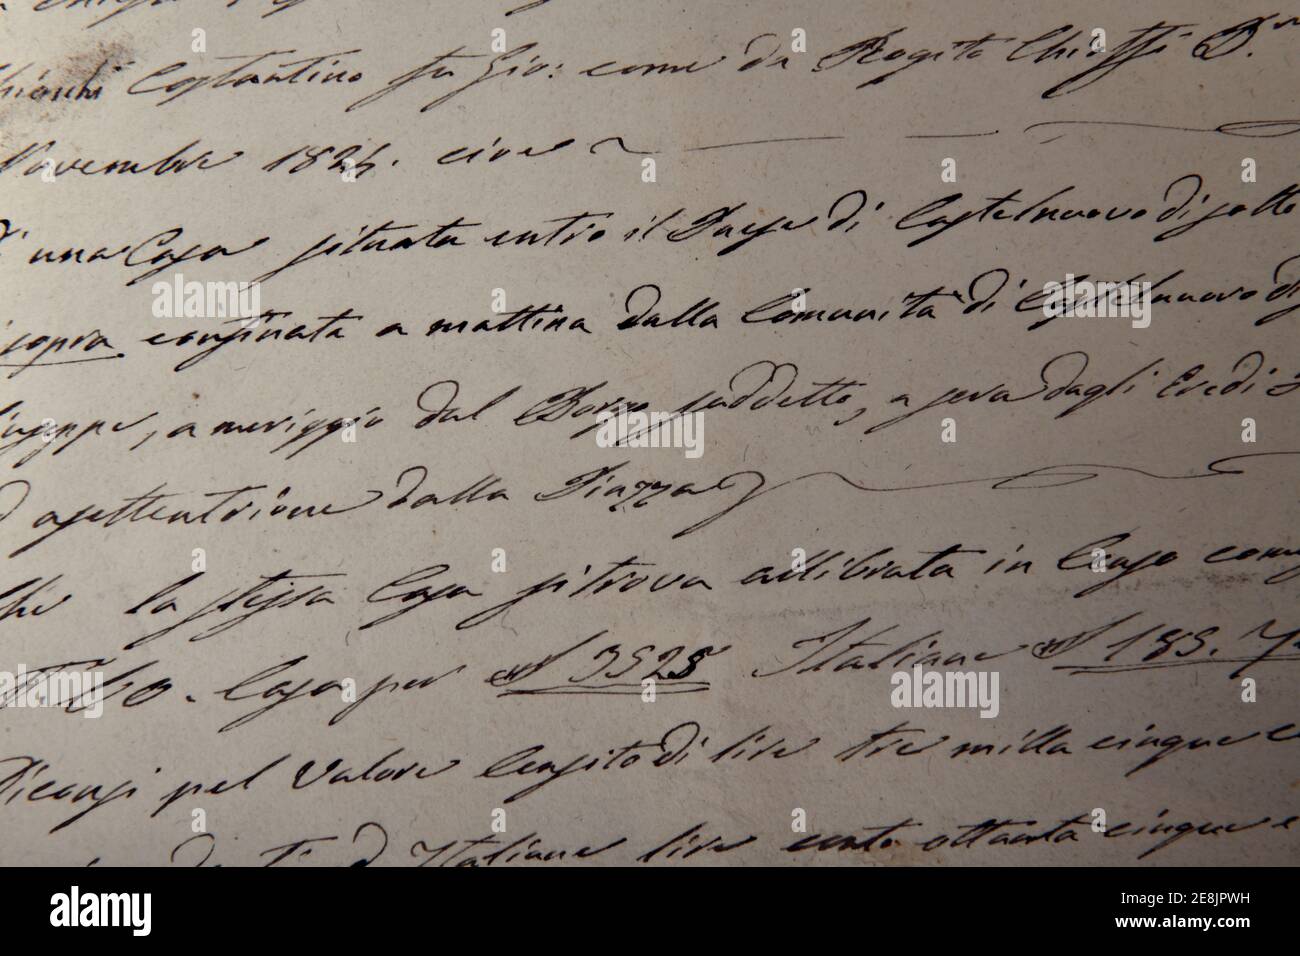 Costantino fu Gio: come da Rogito Chioffi D.r
Novembre 1824. cioe
una Casa situata entro il Paese di Castelnuovo di sotto
sopra confinata a mattina dalla Comunità di Castelnuovo di
a meriggio dal Borgo suddetto, a sera dagli Eredi
settentrione dalla Piazza
la stessa Casa si trova allibrata in Censo
Casa per 3528 Italiane 185.
Dicansi pel Valore Censito di lire tre milla cinque
Italiane lire cento ottanta cinque e
alamy
Image ID: 2E8JPWH
www.alamy.com